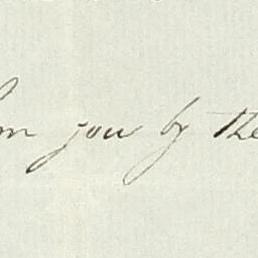 from you by the